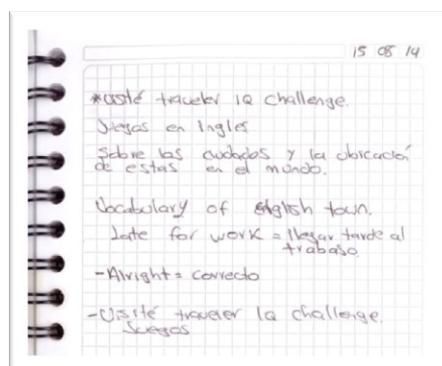 15 08 14
*Visité traveler IQ challenge.
Juegos en Ingles
Sobre las ciudades y la ubicación
de estas en el mundo.
Vocabulary of English town.
Late for work = llegar tarde al
trabajo
- Alright = correcto
- Visité traveler IQ challenge.
Juegos